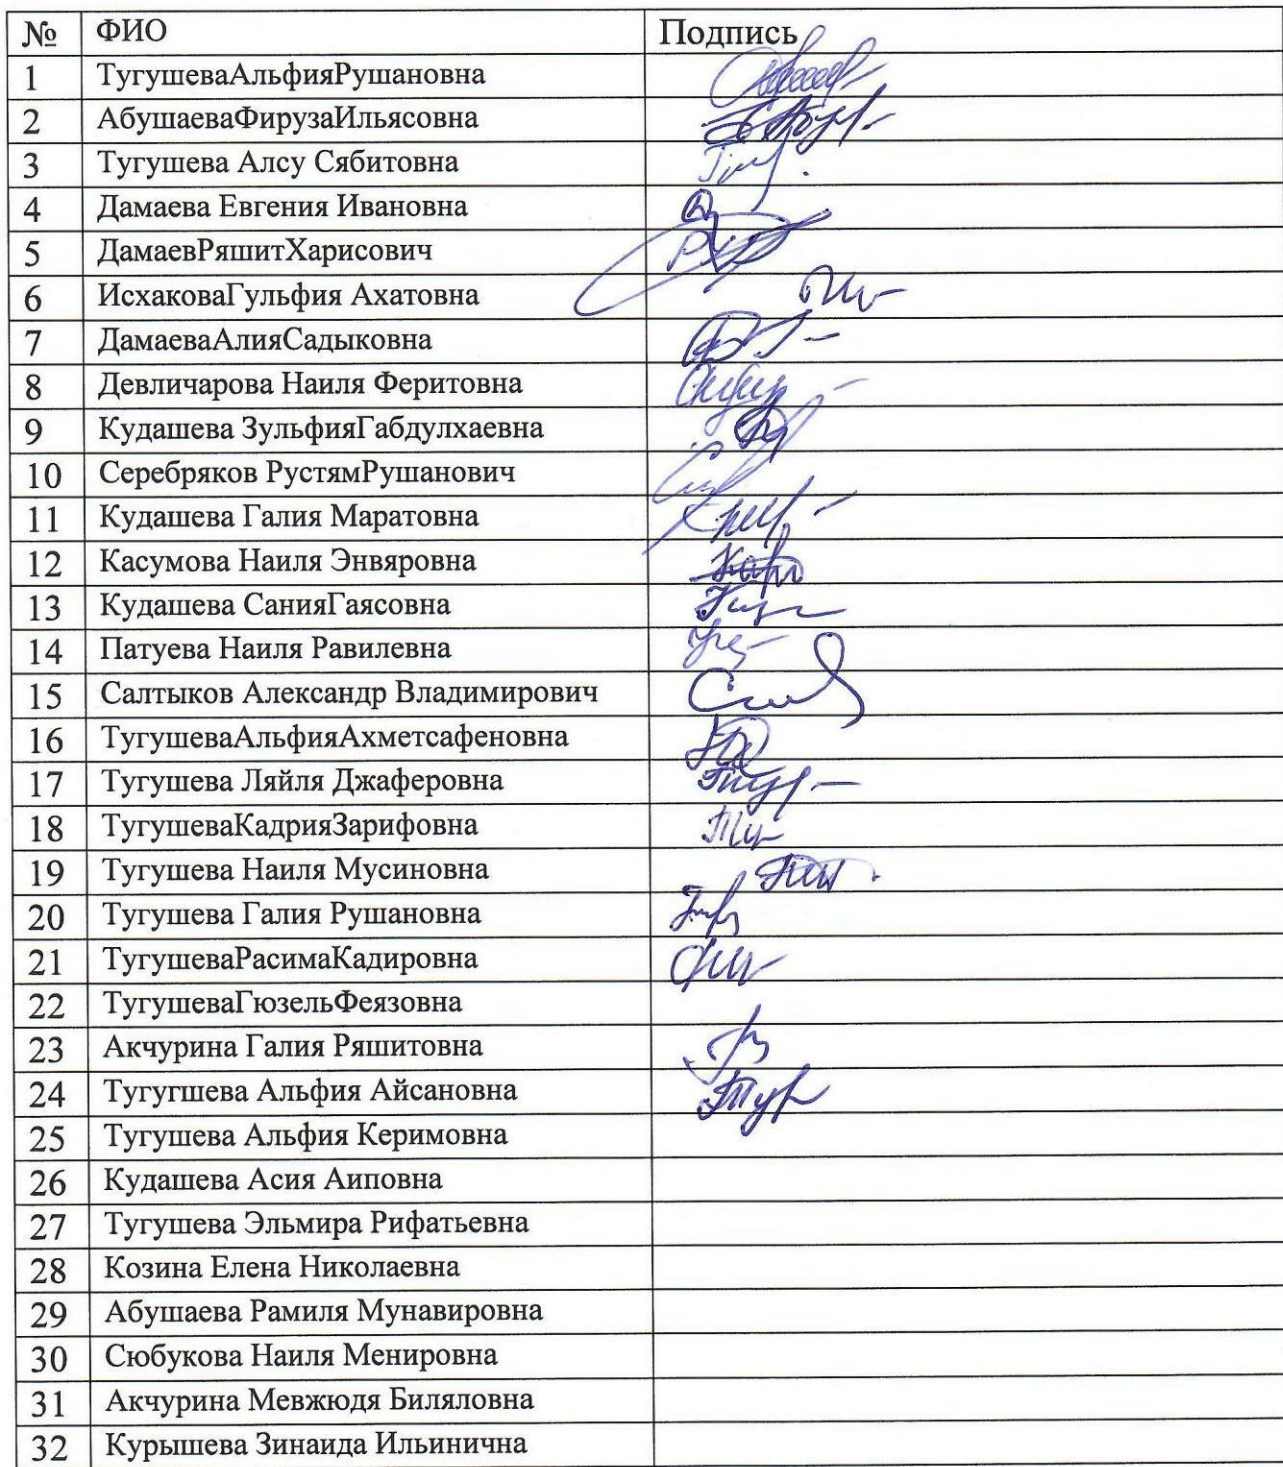 № ФИО Подпись
1 ТугушеваАльфияРушановна
2 АбушаеваФирузаИльясовна
3 Тугушева Алсу Сябитовна
4 Дамаева Евгения Ивановна
5 ДамаевРяшитХарисович
6 ИсхаковаГульфия Ахатовна
7 ДамаеваАлияСадыковна
8 Девличарова Наиля Феритовна
9 Кудашева ЗульфияГабдулхаевна
10 Серебряков РустямРушанович
11 Кудашева Галия Маратовна
12 Касумова Наиля Энвяровна
13 Кудашева СанияГаясовна
14 Патуева Наиля Равилевна
15 Салтыков Александр Владимирович
16 ТугушеваАльфияАхметсафеновна
17 Тугушева Ляйля Джаферовна
18 ТугушеваКадрияЗарифовна
19 Тугушева Наиля Мусиновна
20 Тугушева Галия Рушановна
21 ТугушеваРасимаКадировна
22 ТугушеваГюзельФеязовна
23 Акчурина Галия Ряшитовна
24 Тугугшева Альфия Айсановна
25 Тугушева Альфия Керимовна
26 Кудашева Асия Аиповна
27 Тугушева Эльмира Рифатьевна
28 Козина Елена Николаевна
29 Абушаева Рамиля Мунавировна
30 Сюбукова Наиля Менировна
31 Акчурина Мевжюдя Биляловна
32 Курышева Зинаида Ильинична